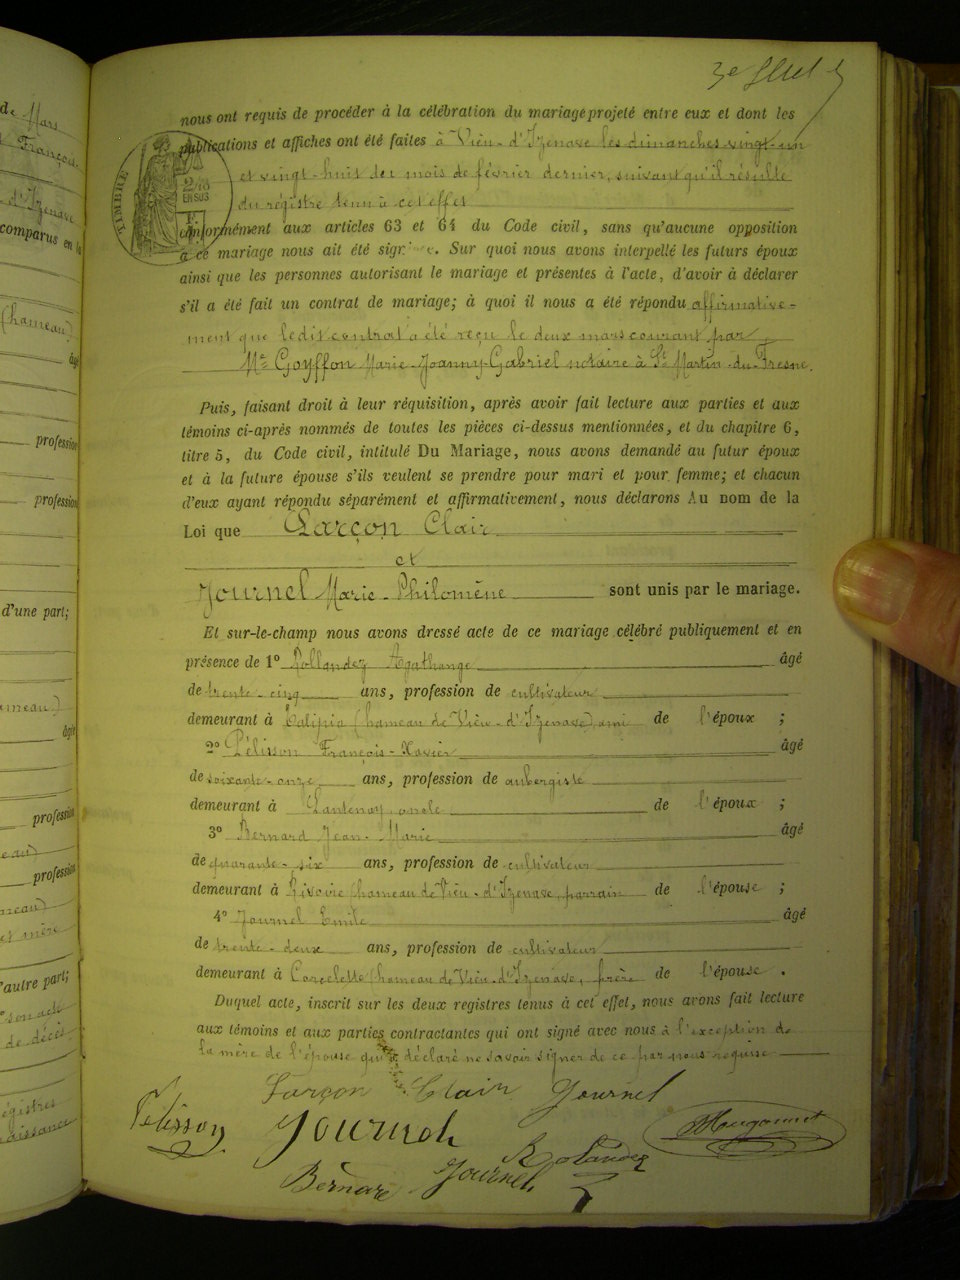 de Mars
François
d'Izenave
comparus en la
(hameau)
âgé
profession
profession
d'une part;
âgé
profession
profession
et mère
d'autre part;
son acte
de décès
registres
naissance
3e
nous ont requis de procéder à la célébration du mariage projeté entre eux et dont les
publications et affiches ont été faites à Vieu-d'Izenave les dimanches vingt-un
et vingt-huit du mois de février dernier, suivant qu'il résulte
du registre tenu à cet effet
conformément aux articles 63 et 64 du Code civil, sans qu'aucune opposition
à ce mariage nous ait été. Sur quoi nous avons interpellé les futurs époux
ainsi que les personnes autorisant le mariage et présentes à l'acte, d'avoir à déclarer
s'il a été fait un contrat de mariage; à quoi il nous a été répondu affirmative-
ment que ledit contrat a été reçu le deux mars courant par
Me Goyffon Marie-Joanny-Gabriel notaire à St Martin-du-Fresne.
Puis, faisant droit à leur réquisition, après avoir fait lecture aux parties et aux
témoins ci-après nommés de toutes les pièces ci-dessus mentionnées, et du chapitre 6,
titre 5, du Code civil, intitulé Du Mariage, nous avons demandé au futur époux
et à la future épouse s'ils veulent se prendre pour mari et pour femme; et chacun
d'eux ayant répondu séparément et affirmativement, nous déclarons Au nom de la
Loi que Larçon Clair
et
Journel Marie-Philomène sont unis par le mariage.
Et sur-le-champ nous avons dressé acte de ce mariage célébré publiquement et en
présence de 1° Rollandez Agathange âgé
de trente-cinq ans, profession de cultivateur
demeurant à (hameau de Vieu-d'Izenave) ami de l'époux ;
2° Pélisson François-Xavier âgé
de soixante-onze ans, profession de aubergiste
demeurant à Lantenay, oncle de l'époux ;
3° Bernard Jean-Marie âgé
de quarante-six ans, profession de cultivateur
demeurant à Rivoire (hameau de Vieu-d'Izenave, parrain de l'épouse ;
4° Journel Emile âgé
de trente-deux ans, profession de cultivateur
demeurant à Corcelette (hameau de Vieu-d'Izenave, frère de l'épouse .
Duquel acte, inscrit sur les deux registres tenus à cet effet, nous avons fait lecture
aux témoins et aux parties contractantes qui ont signé avec nous à l'exception de
la mère de l'épouse qui a déclaré ne savoir signer de ce par nous requise
Larçon Clair Journel
Pélisson Journel Hugonnet
Bernard Journel Rolandez
TIMBRE
2/10
EN SUS